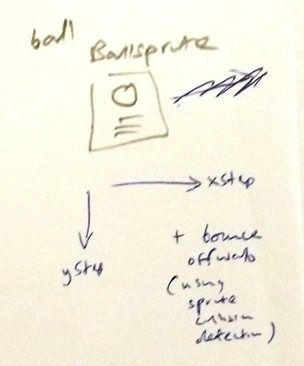 ball
Ballsprite
xstep
ystep
+ bounce
off walls
(using
sprite
collision
detection)